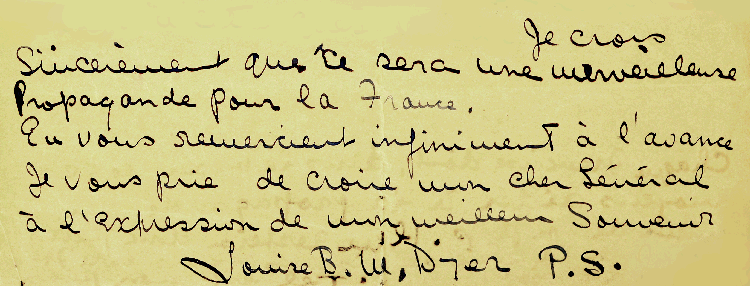 Je crois
Sincèrement que ce sera une merveilleuse
Propagande pour la France.
En vous remercient infiniment à l'avance
Je vous prie de croire mon cher Général
à l'expression de mon meilleur Souvenir
Louise B. M. Dyer P.S.